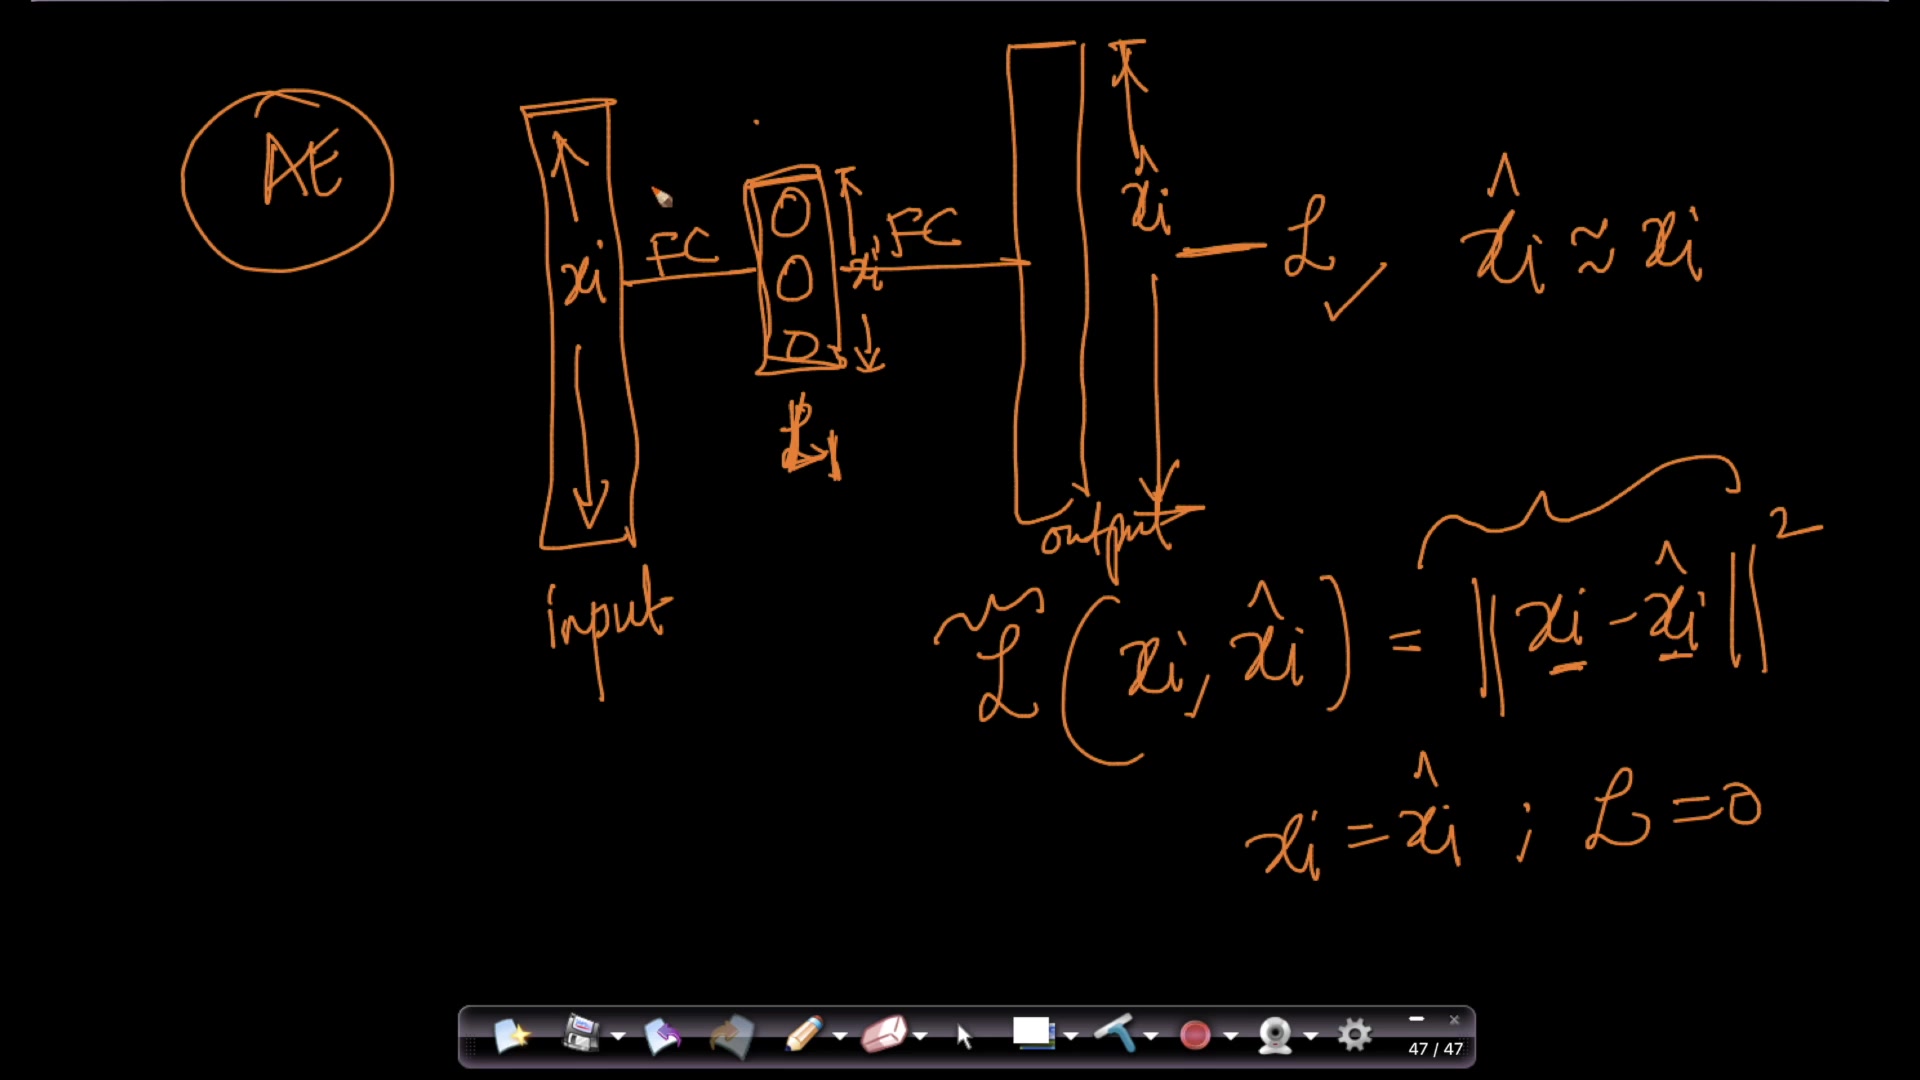 AE
xi
FC
xi'
FC
x̂i
L
x̂i ≈ xi
L1
input
output
L(xi, x̂i) = ||xi - x̂i||²
xi = x̂i ; L = 0
47 / 47